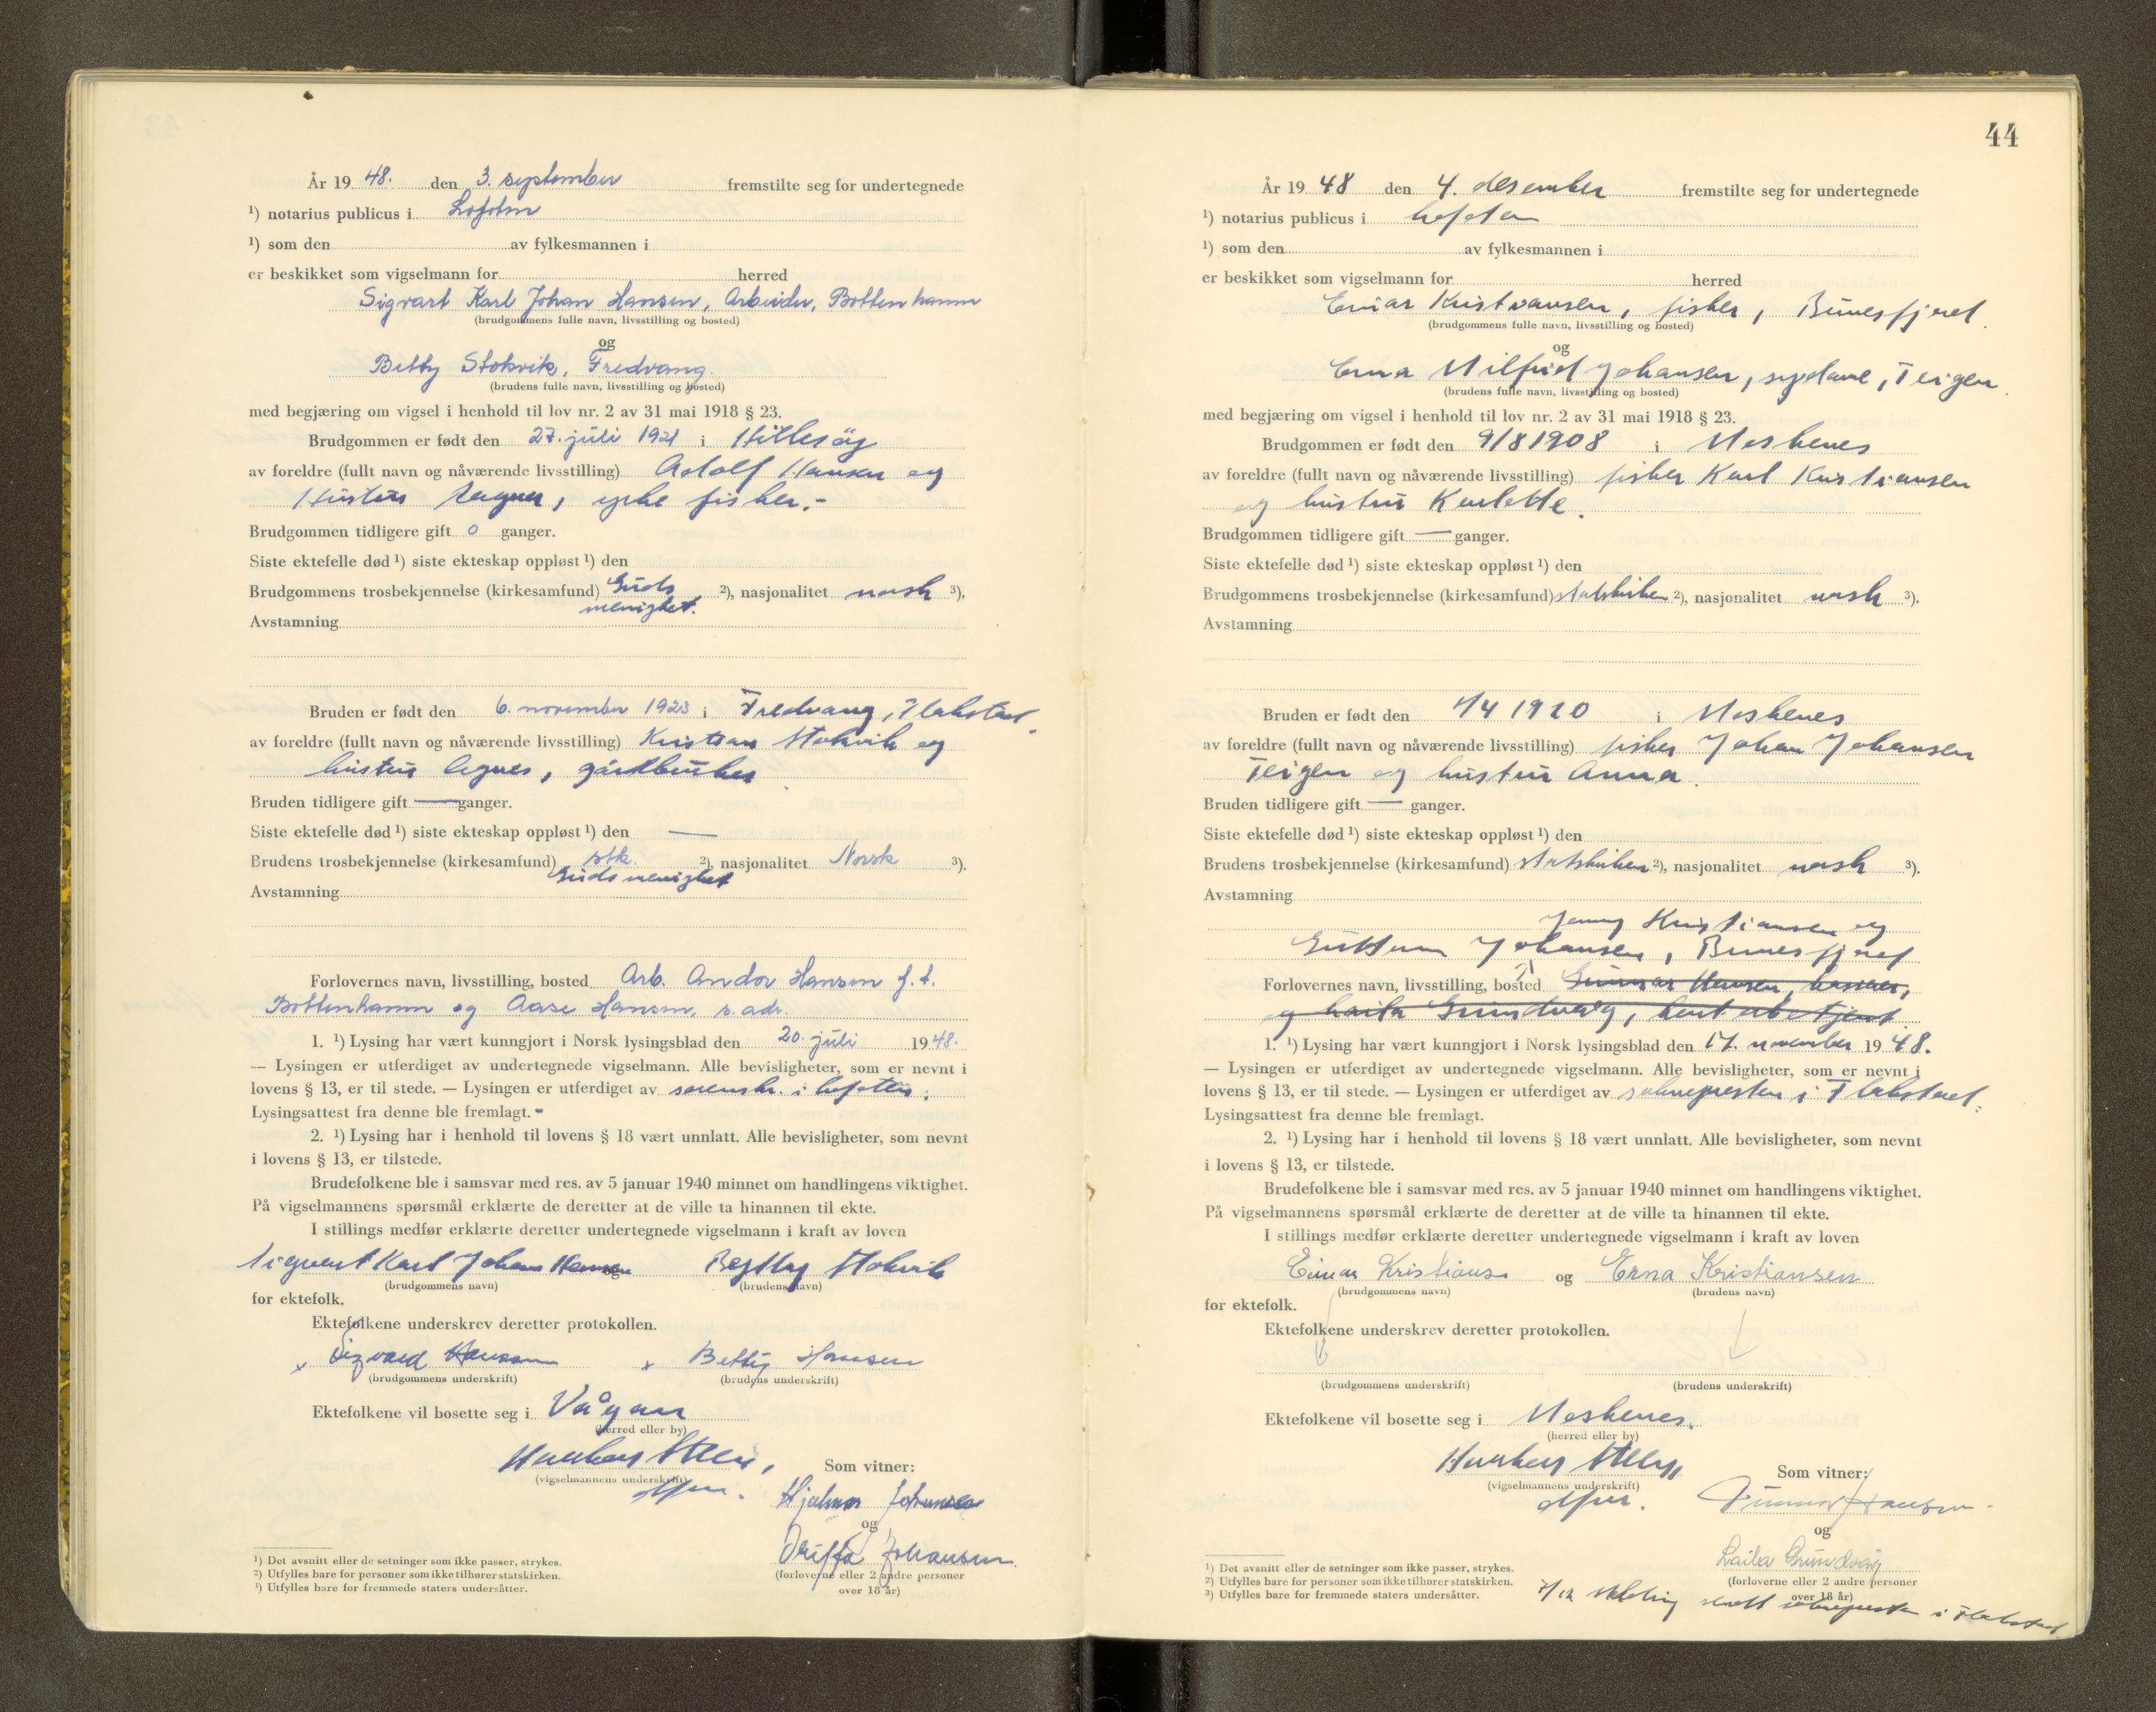 År 19 48. den 3. september fremstilte seg for undertegnede
¹) notarius publicus i Lofoten
¹) som den av fylkesmannen i
er beskikket som vigselmann for herred
Sigvart Karl Johan Hansen, Arbeider, Botten hamn
(brudgommens fulle navn, livsstilling og bosted)
og
Betty Stokvik, Fredvang.
(brudens fulle navn, livsstilling og bosted)
med begjæring om vigsel i henhold til lov nr. 2 av 31 mai 1918 § 23.
Brudgommen er født den 27. juli 1921 i Hillesøy
av foreldre (fullt navn og nåværende livsstilling) Adolf Hansen og
Hustru Agnes, yrke fisker.-
Brudgommen tidligere gift 0 ganger.
Siste ektefelle død ¹) siste ekteskap oppløst ¹) den
Brudgommens trosbekjennelse (kirkesamfund) Guds menighet. ²), nasjonalitet norsk ³).
Avstamning
Bruden er født den 6. november 1923 i Fredvang, Flakstad.
av foreldre (fullt navn og nåværende livsstilling) Kristian Stokvik og
hustru Agnes, gårdbruker
Bruden tidligere gift — ganger.
Siste ektefelle død ¹) siste ekteskap oppløst ¹) den —
Brudens trosbekjennelse (kirkesamfund) stk. ²), nasjonalitet Norsk ³).
Guds menighet
Avstamning
Forlovernes navn, livsstilling, bosted Arb. Andor Hansen f. t.
Bottenhamn og Aase Hansen, s. adr.
1. ¹) Lysing har vært kunngjort i Norsk lysingsblad den 20. juli 19 48.
— Lysingen er utferdiget av undertegnede vigselmann. Alle bevisligheter, som er nevnt i
lovens § 13, er til stede. — Lysingen er utferdiget av sorenskr. i Lofoten.
Lysingsattest fra denne ble fremlagt. -
2. ¹) Lysing har i henhold til lovens § 18 vært unnlatt. Alle bevisligheter, som nevnt
i lovens § 13, er tilstede.
Brudefolkene ble i samsvar med res. av 5 januar 1940 minnet om handlingens viktighet.
På vigselmannens spørsmål erklærte de deretter at de ville ta hinannen til ekte.
I stillings medfør erklærte deretter undertegnede vigselmann i kraft av loven
Sigvart Karl Johan Hansen Betty Stokvik
(brudgommens navn) (brudens navn)
for ektefolk.
Ektefolkene underskrev deretter protokollen.
x Sigvard Hansen x Betty Hansen
(brudgommens underskrift) (brudens underskrift)
Ektefolkene vil bosette seg i Vågan
(herred eller by)
(vigselmannens underskrift)
Som vitner:
Hjalmar Johansen
og
Johansen
(forloverne eller 2 andre personer
over 18 år)
¹) Det avsnitt eller de setninger som ikke passer, strykes.
²) Utfylles bare for personer som ikke tilhører statskirken.
³) Utfylles bare for fremmede staters undersåtter.
44
År 19 48 den 4. desember fremstilte seg for undertegnede
¹) notarius publicus i Lofoten
¹) som den av fylkesmannen i
er beskikket som vigselmann for herred
Einar Kristiansen, fisker, Bunesfjord.
(brudgommens fulle navn, livsstilling og bosted)
og
Erna Hilfrid Johansen, sydame, Teigen.
(brudens fulle navn, livsstilling og bosted)
med begjæring om vigsel i henhold til lov nr. 2 av 31 mai 1918 § 23.
Brudgommen er født den 9/8 1908 i Moskenes
av foreldre (fullt navn og nåværende livsstilling) fisker Karl Kristiansen
og hustru Karlotte.
Brudgommen tidligere gift — ganger.
Siste ektefelle død ¹) siste ekteskap oppløst ¹) den
Brudgommens trosbekjennelse (kirkesamfund) statskirken ²), nasjonalitet norsk ³).
Avstamning
Bruden er født den 1/4 1920 i Moskenes
av foreldre (fullt navn og nåværende livsstilling) fisker Johan Johansen
Teigen og hustru Anna.
Bruden tidligere gift — ganger.
Siste ektefelle død ¹) siste ekteskap oppløst ¹) den
Brudens trosbekjennelse (kirkesamfund) statskirken ²), nasjonalitet norsk ³).
Avstamning
Jenny Kristiansen og
Guttorm Johansen, Bunesfjord
Forlovernes navn, livsstilling, bosted Gunnar Hansen, kasserer,
og Laila Grundvåg, kontorbetjent
1. ¹) Lysing har vært kunngjort i Norsk lysingsblad den 17. november 19 48.
— Lysingen er utferdiget av undertegnede vigselmann. Alle bevisligheter, som er nevnt i
lovens § 13, er til stede. — Lysingen er utferdiget av soknepresten i Flakstad.
Lysingsattest fra denne ble fremlagt.
2. ¹) Lysing har i henhold til lovens § 18 vært unnlatt. Alle bevisligheter, som nevnt
i lovens § 13, er tilstede.
Brudefolkene ble i samsvar med res. av 5 januar 1940 minnet om handlingens viktighet.
På vigselmannens spørsmål erklærte de deretter at de ville ta hinannen til ekte.
I stillings medfør erklærte deretter undertegnede vigselmann i kraft av loven
Einar Kristians. og Erna Kristiansen
(brudgommens navn) (brudens navn)
for ektefolk.
Ektefolkene underskrev deretter protokollen.
(brudgommens underskrift) (brudens underskrift)
Ektefolkene vil bosette seg i Moskenes.
(herred eller by)
(vigselmannens underskrift)
Som vitner:
Gunnar Hansen
og
Laila Grundvåg
(forloverne eller 2 andre personer
over 18 år)
¹) Det avsnitt eller de setninger som ikke passer, strykes.
²) Utfylles bare for personer som ikke tilhører statskirken.
³) Utfylles bare for fremmede staters undersåtter.
7/12 melding sendt soknepresten i Flakstad